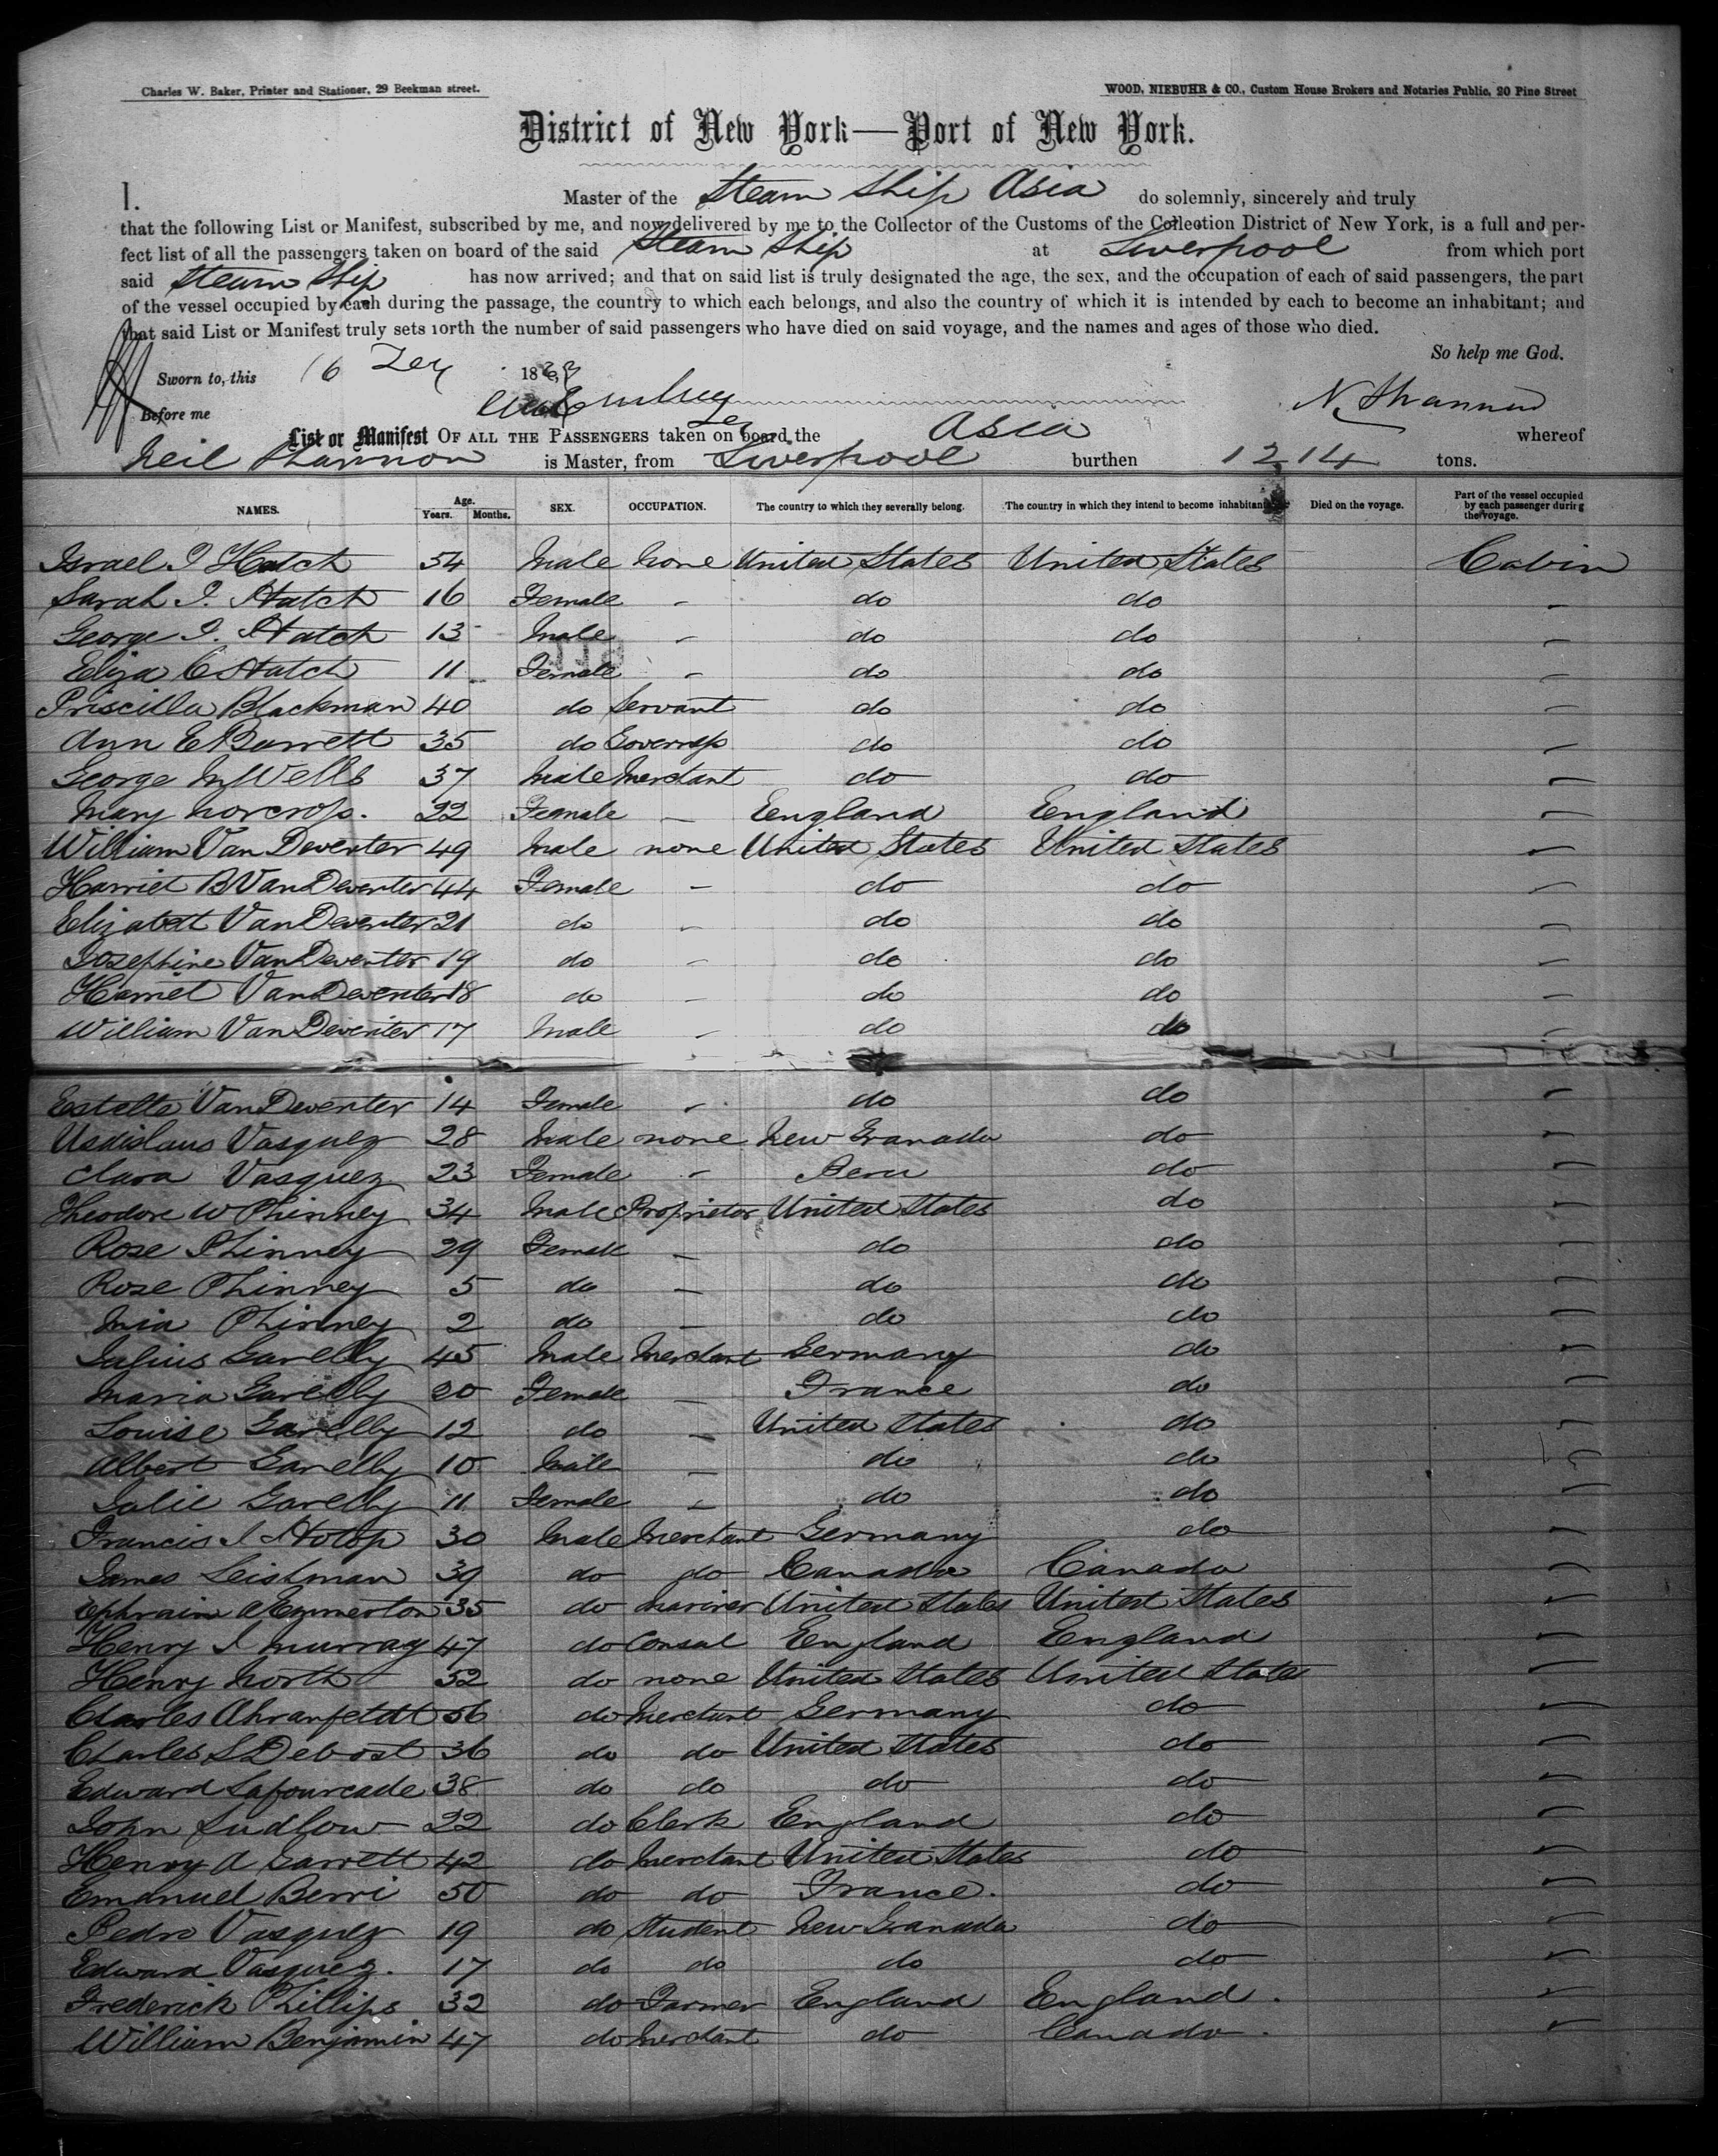 Charles W. Baker, Printer and Stationer, 29 Beekman street.
WOOD, NIEBUHR & CO., Custom House Brokers and Notaries Public, 20 Pine Street
District of New York—Port of New York.
I. Master of the Steam Ship Asia do solemnly, sincerely and truly
that the following List or Manifest, subscribed by me, and now delivered by me to the Collector of the Customs of the Collection District of New York, is a full and per-
fect list of all the passengers taken on board of the said Steam Ship at Liverpool from which port
said Steam Ship has now arrived; and that on said list is truly designated the age, the sex, and the occupation of each of said passengers, the part
of the vessel occupied by each during the passage, the country to which each belongs, and also the country of which it is intended by each to become an inhabitant; and
that said List or Manifest truly sets forth the number of said passengers who have died on said voyage, and the names and ages of those who died.
So help me God.
Sworn to, this 16 186
Before me N. Shannon
List or Manifest OF ALL THE PASSENGERS taken on board the Asia whereof
Neil Shannon is Master, from Liverpool burthen 1214 tons.
NAMES. Age. Years. Months. SEX. OCCUPATION. The country to which they severally belong. The country in which they intend to become inhabitants Died on the voyage. Part of the vessel occupied by each passenger during the voyage.
Israel I Hatch 54 Male None United States United States Cabin
Sarah I. Hatch 16 Female - do do -
George I. Hatch 13 Male - do do -
Eliza C Hatch 11 Female - do do -
Priscilla Blackman 40 do Servant do do -
Ann E Barrett 35 do Governess do do -
George M Wells 37 Male Merchant do do -
Mary Norcross. 22 Female - England England -
William Van Deventer 49 Male none United States United States -
Harriet B Van Deventer 44 Female - do do -
Elizabeth Van Deventer 21 do - do do -
Josephine Van Deventer 19 do - do do -
Harriet Van Deventer 18 do - do do -
William Van Deventer 17 Male - do do -
Estelle Van Deventer 14 Female - do do -
Vasquez 28 Male none New Granada do -
Clara Vasquez 23 Female - Peru do -
Theodore W Phinney 34 Male Proprietor United States do -
Rose Phinney 29 Female - do do -
Rose Phinney 5 do - do do -
Mia Phinney 2 do - do do -
Julius Garelly 45 Male Merchant Germany do -
Maria Garelly 30 Female - France do -
Louise Garelly 12 do - United States do -
Albert Garelly 10 Male - do do -
Julie Garelly 11 Female - do do -
Francis I Holop 30 Male Merchant Germany do -
James Leishman 39 do do Canada Canada -
Ephraim A Emmerton 35 do Mariner United States United States -
Henry I Murray 47 do Consul England England -
Henry North 52 do none United States United States -
Charles Ahranfeldt 56 do Merchant Germany do -
Charles S Debost 36 do do United States do -
Edward Lafourcade 38 do do do do -
John Ludlow 22 do Clerk England do -
Henry A Garrett 42 do Merchant United States do -
Emanuel Berri 50 do do France. do -
Pedro Vasquez 19 do Student New Granada do -
Edward Vasquez. 17 do do do do -
Frederick Phillips 32 do Farmer England England. -
William Benjamin 47 do Merchant do Canada. -